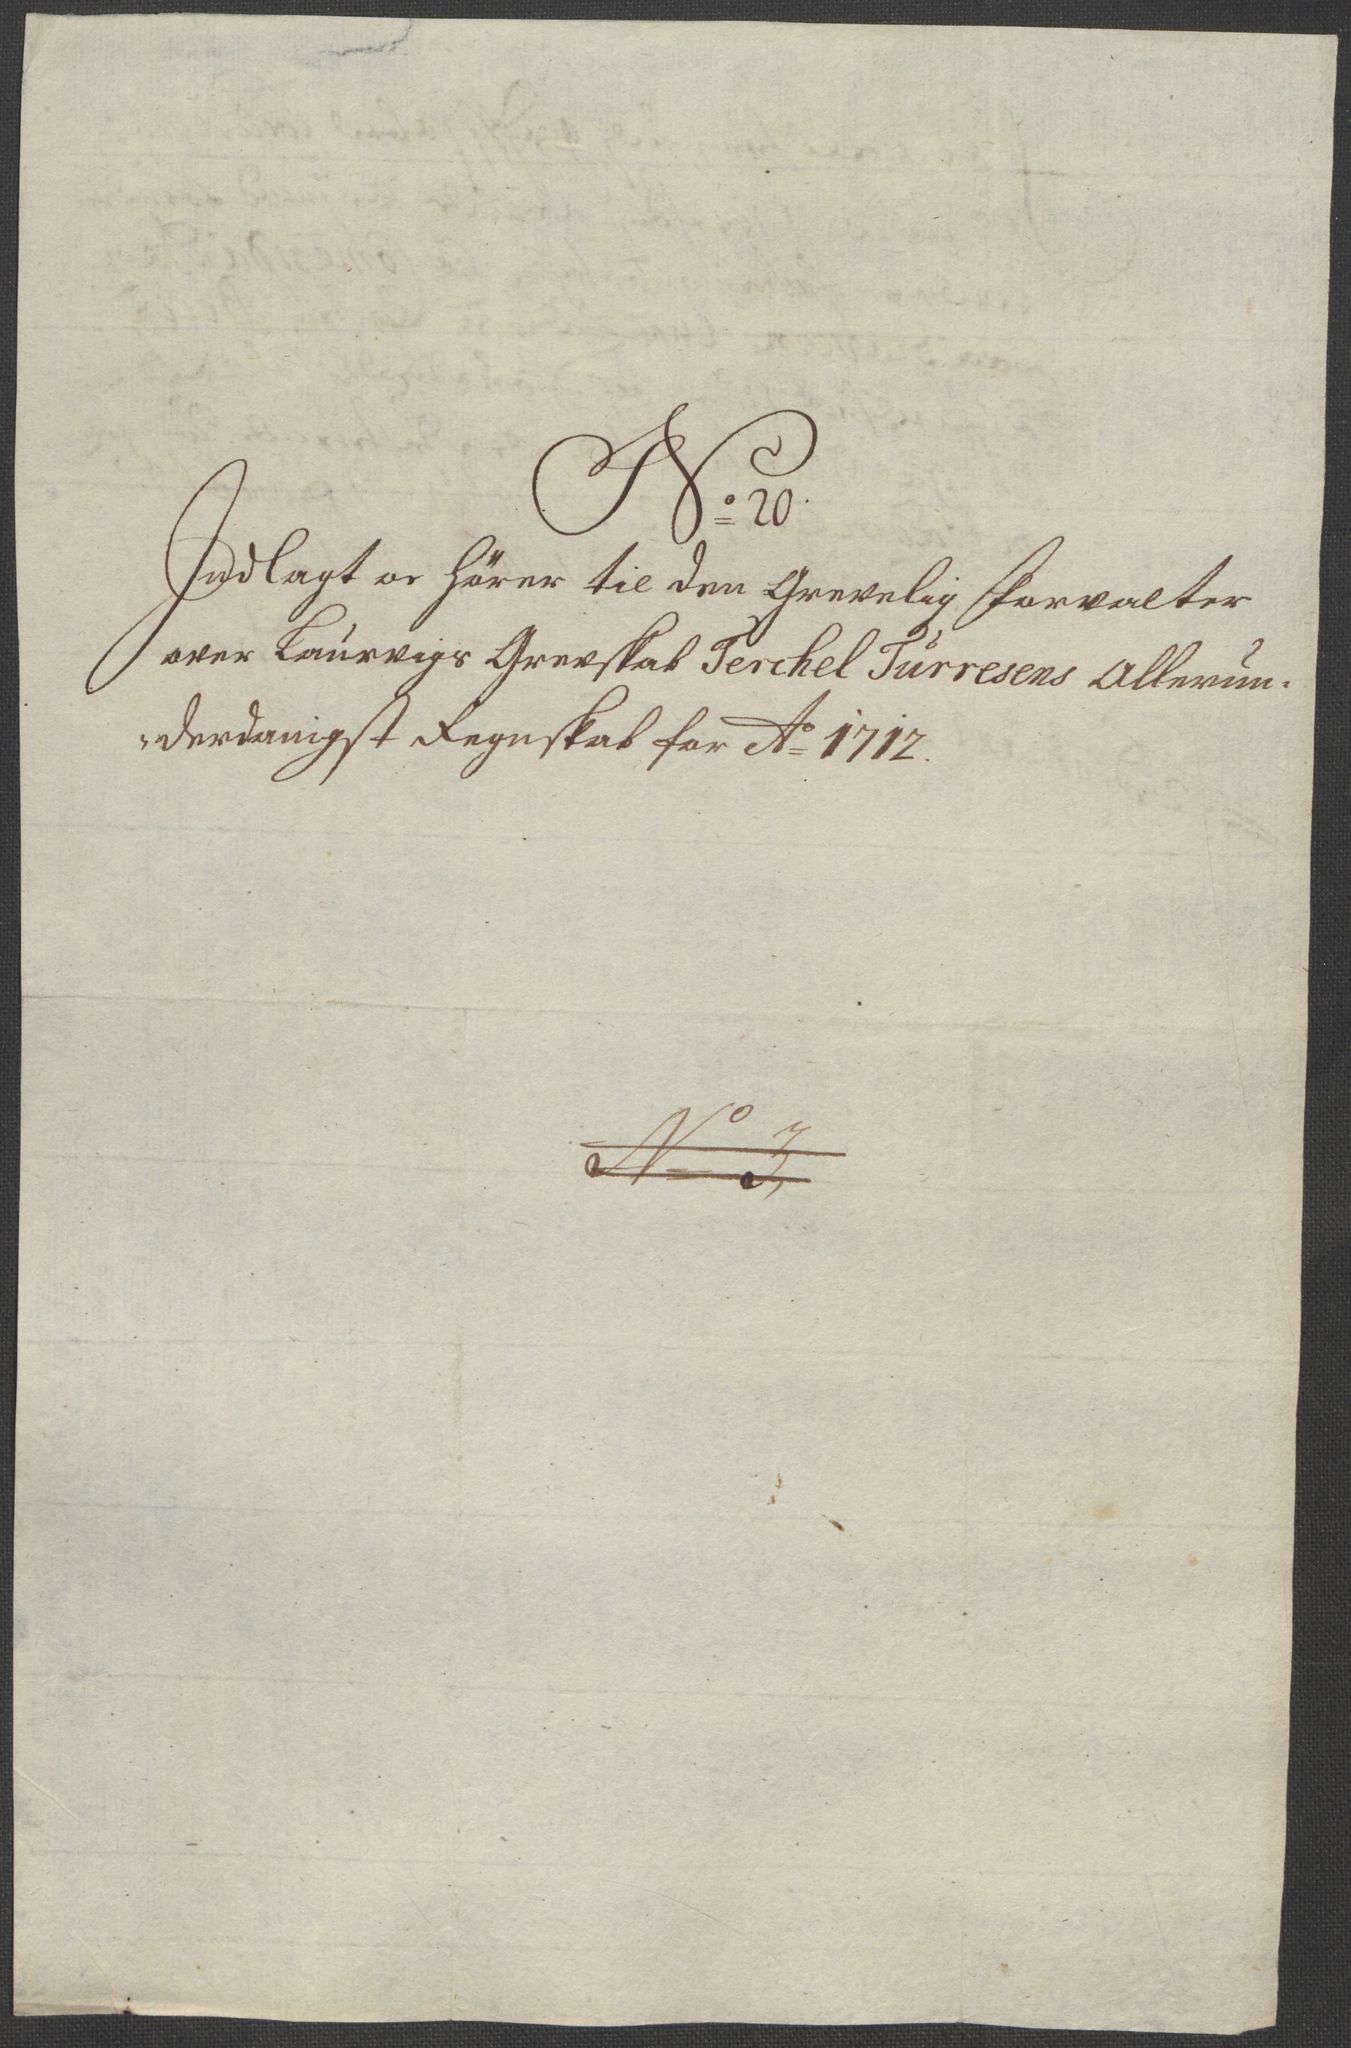 No 20.
Indlagt oc hörer til den Grevelig Forvalter
over Laurvigs Grevskab Terchel Turresens Allerun-
derdanigst Regnskab for Ao 1712.
No 3,